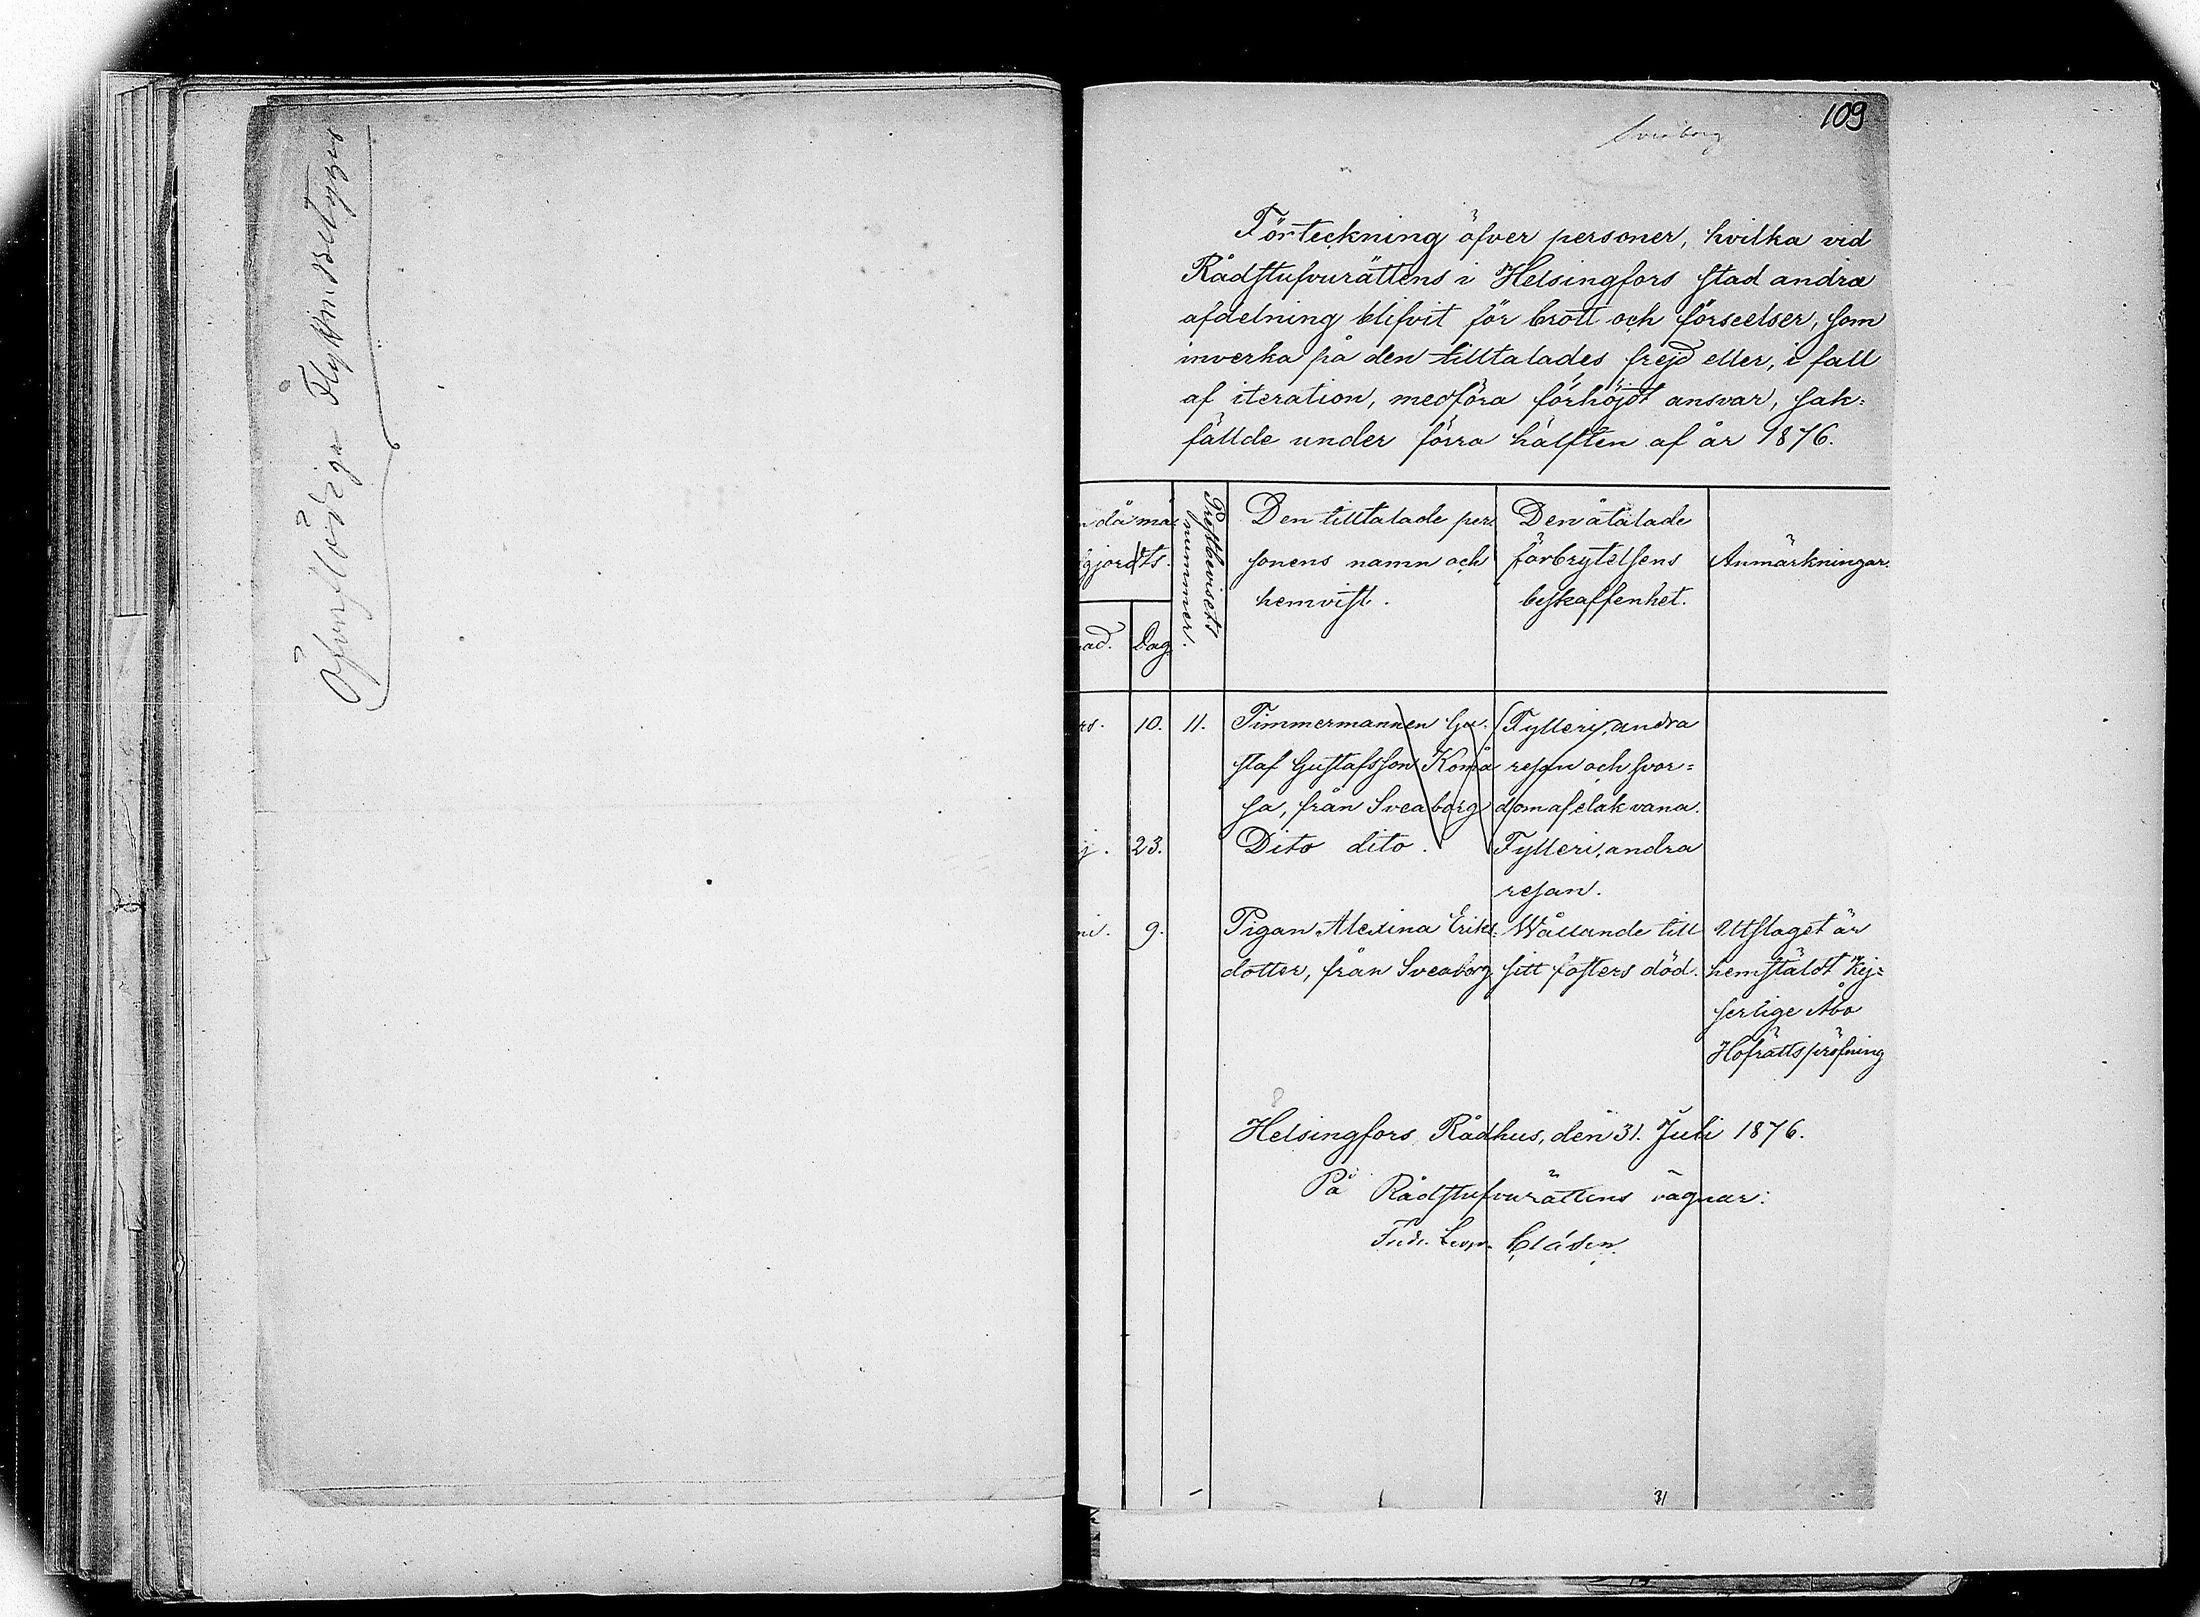 Öfverflödiga Flyttningsbetyger
109
Sveaborg
Förteckning öfver personer, hvilka vid
Rådstufvurättens i Helsingfors stad andra
afdelning blifvit för brott och förseelser, som
inverka på den tilltalades frejd eller, i fall
af iteration, medföra förhöjdt ansvar, sak=
fällde under förra hälften af år 1876.
n då må=
gjordts.
ad.
Dag.
Prestbevisets
nummer.
Den tilltalade per=
sonens namn och
hemvist.
Den åtalade
förbrytelsens
beskaffenhet.
Anmärkningar.
rs. 10. 11. Timmermannen Gu= Fylleri, andra
staf Gustafsson resan och svor=
sa, från Sveaborg dom af elak vana.
j. 23. Dito dito. Fylleri, andra
resan.
ni. 9. Pigan Alexina Eriks= Wållande till Utslaget är
dotter, från Sveaborg sitt fosters död. hemstäldt Kej=
serlige Åbo
Hofrätts pröfning
Helsingfors Rådhus, den 31. Juli 1876.
På Rådstufvurättens vägnar:
Fredr. Leop. Clásen.
31